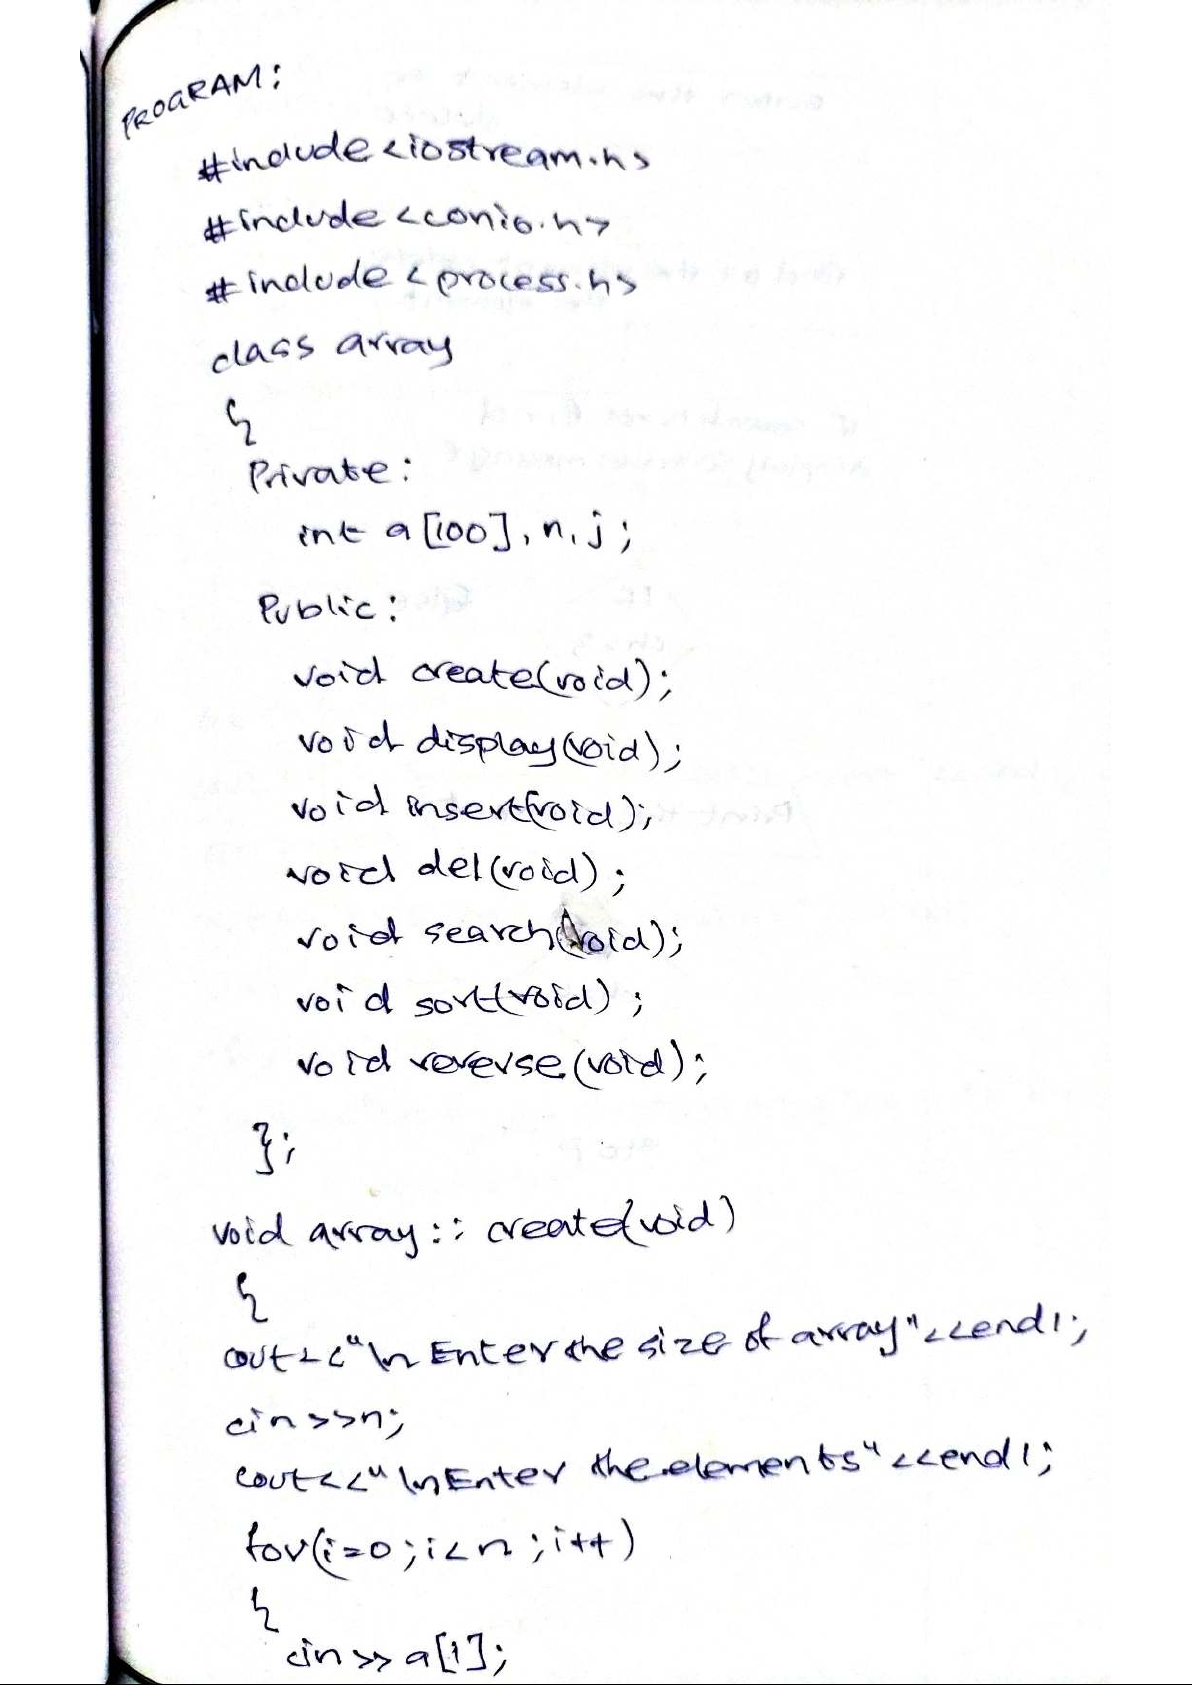 PROGRAM:
#include<iostream.h>
#include<conio.h>
#include<process.h>
class array
{
Private:
int a[100],n,j;
Public:
void create(void);
void display(void);
void insert(void);
void del(void);
void search(void);
void sort(void);
void reverse(void);
};
void array::create(void)
{
cout<<"\n Enter the size of array"<<endl;
cin>>n;
cout<<"\nEnter the elements"<<endl;
for(i=0;i<n;i++)
{
cin>>a[1];